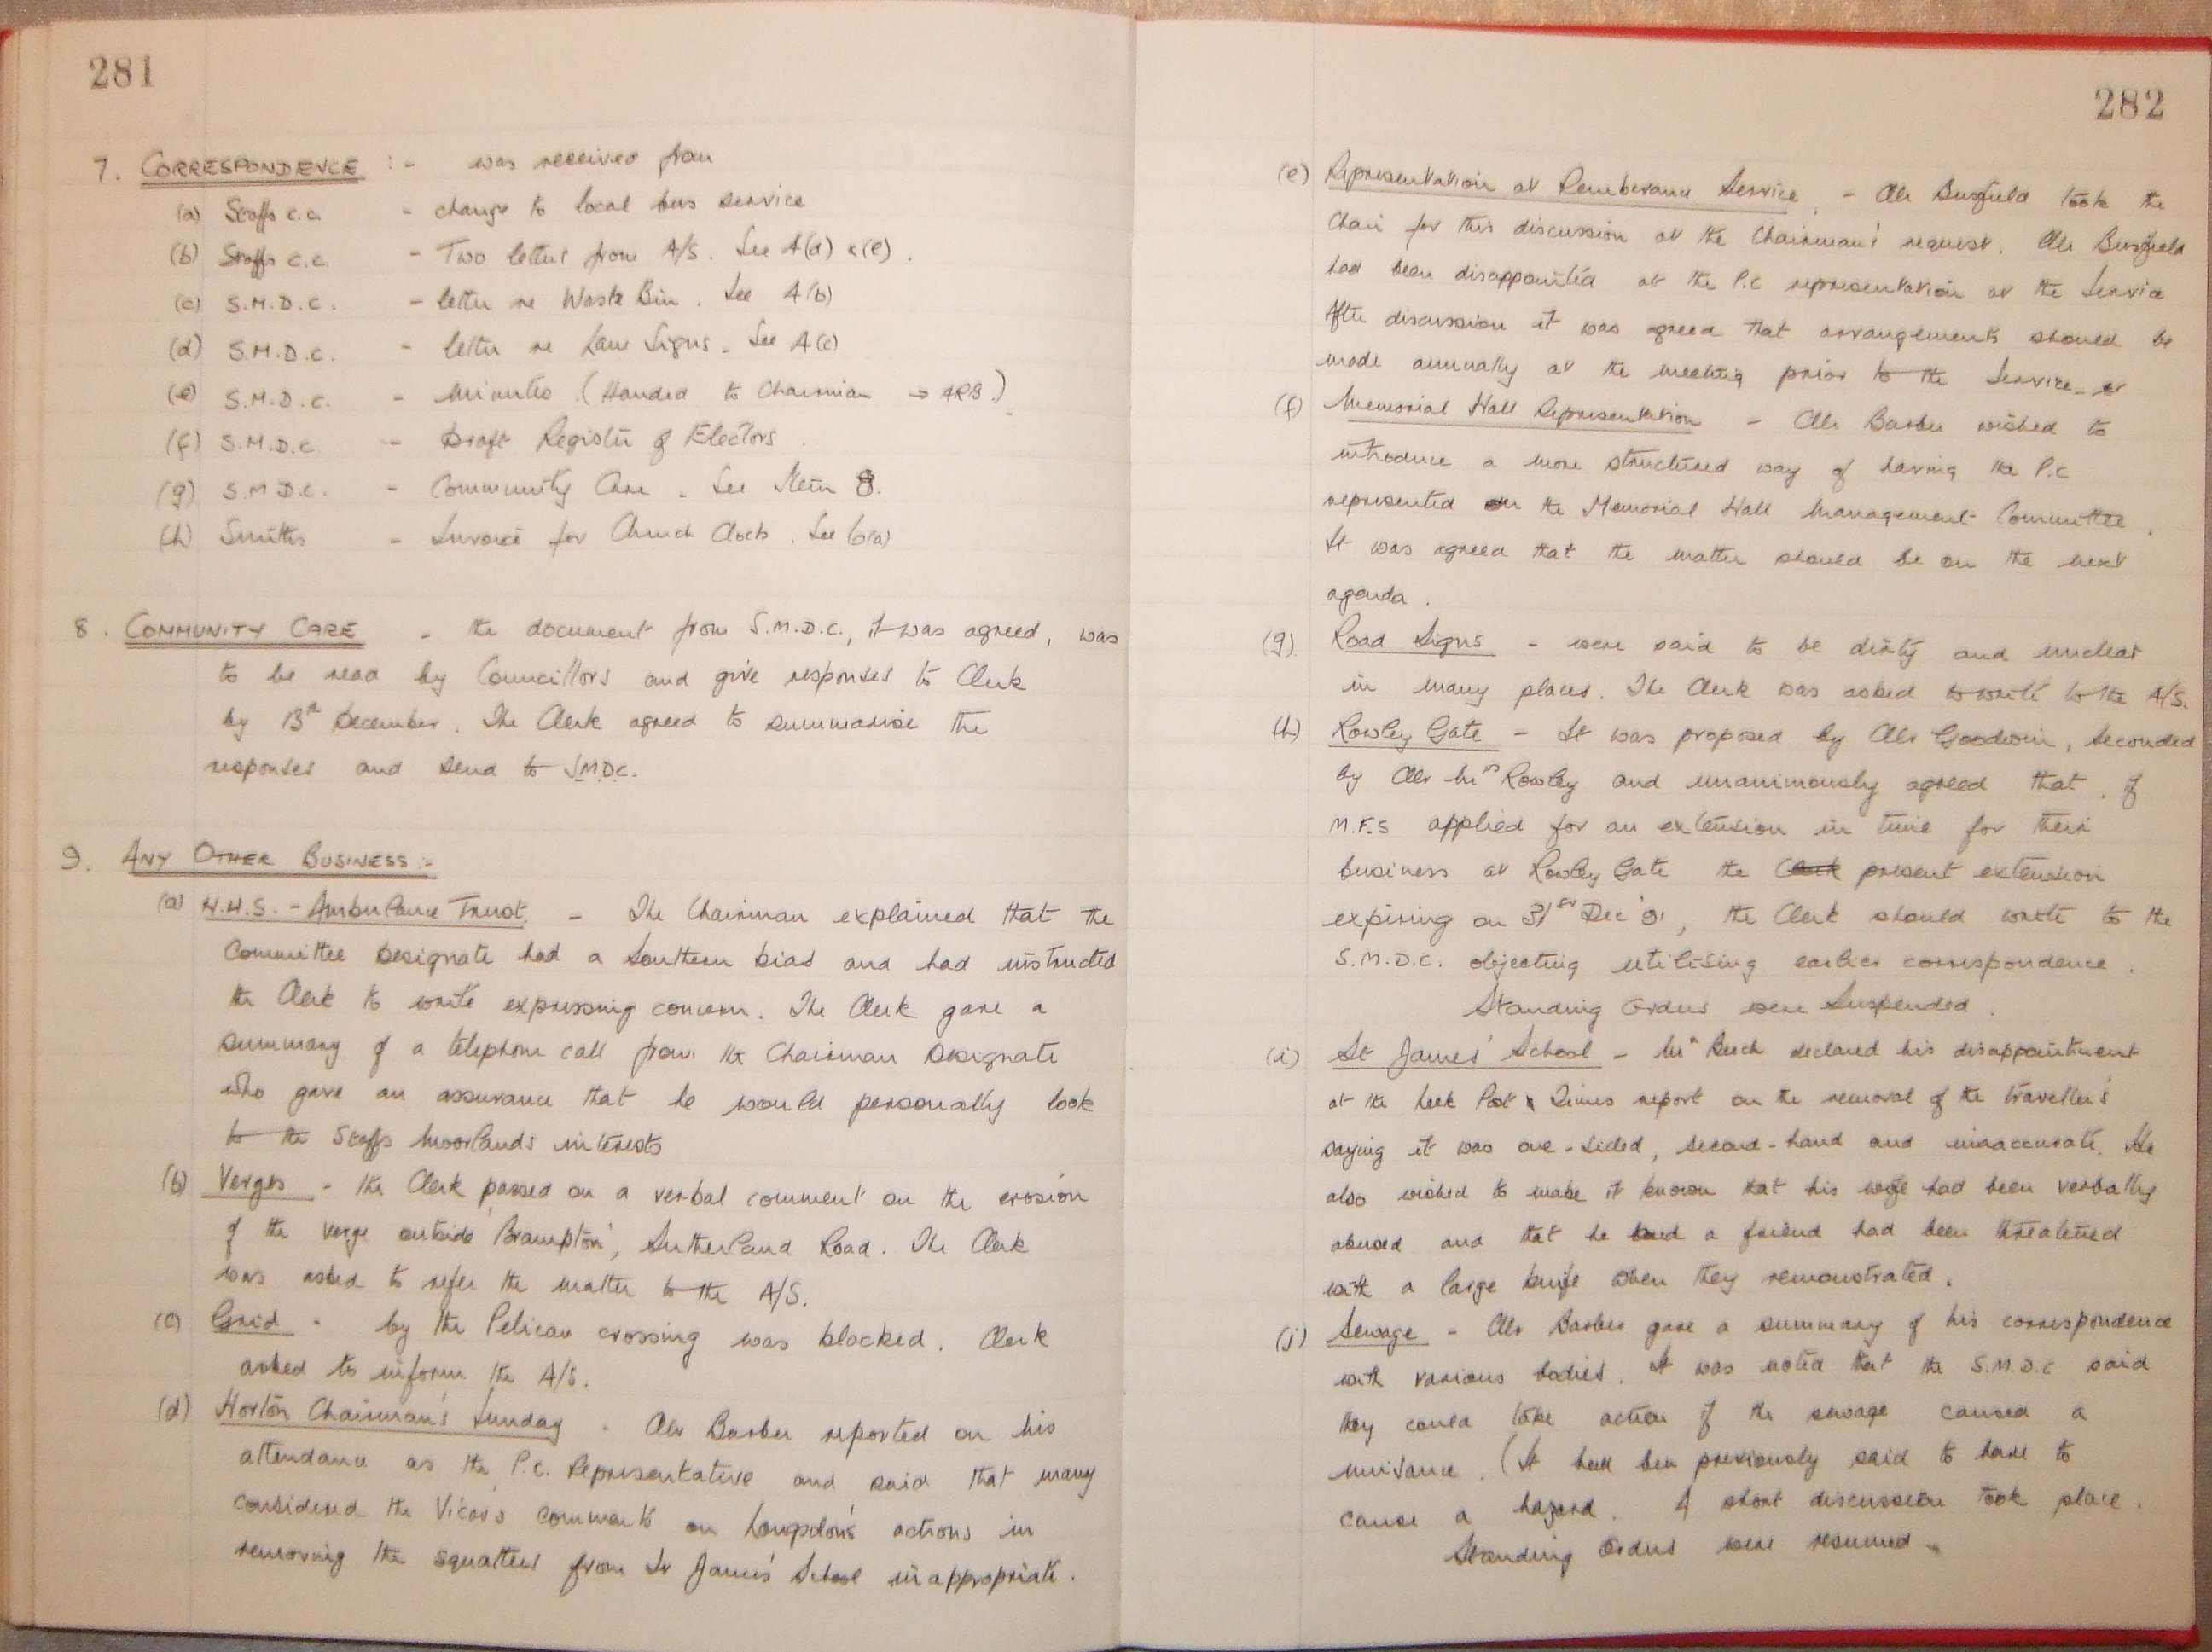 281
7. CORRESPONDENCE :- was received from
(a) Staffs c.c. - change to local bus service
(b) Staffs c.c. - Two letters from A/S. See 4(d) & (e).
(c) S.M.D.C. - letter re Waste Bin. See 4(b)
(d) S.M.D.C. - letter re Lane Signs. See 4(c)
(e) S.M.D.C. - Minutes (Handed to Chairman → ARB.)
(f) S.M.D.C. - Draft Register of Electors.
(g) S.M.D.C. - Community Care. See Item 8.
(h) Smiths - Invoice for Church Clock. See 6(a)
8. COMMUNITY CARE - the document from S.M.D.C., it was agreed, was
to be read by Councillors and give responses to Clerk
by 13th December. The Clerk agreed to summarise the
responses and send to S.M.D.C.
9. ANY OTHER BUSINESS :-
(a) N.H.S. - Ambulance Trust - The Chairman explained that the
Committee Designate had a Southern bias and had instructed
the Clerk to write expressing concern. The Clerk gave a
summary of a telephone call from the Chairman Designate
who gave an assurance that he would personally look
to the Staffs Moorlands interests
(b) Verges - the Clerk passed on a verbal comment on the erosion
of the verge outside 'Brampton', Sutherland Road. The Clerk
was asked to refer the matter to the A/S.
(c) Grid - by the Pelican crossing was blocked. Clerk
asked to inform the A/S.
(d) Horton Chairman's Sunday - Cllr Barber reported on his
attendance as the P.C. Representative and said that many
considered the Vicar's comments on Longsdon's actions in
removing the squatters from St James' School inappropriate.
282
(e) Representation at Remberance Service. - Cllr Busfield took the
Chair for this discussion at the Chairman's request. Cllr Busfield
had been disappointed at the P.C representation at the Service
After discussion it was agreed that arrangements should be
made annually at the meeting prior to the Service.
(f) Memorial Hall Representation - Cllr Barber wished to
introduce a more structured way of having the P.C
represented on the Memorial Hall Management Committee.
It was agreed that the matter should be on the next
agenda.
(g) Road Signs - were said to be dirty and unclear
in many places. The Clerk was asked to write to the A/S.
(h) Rowley Gate - It was proposed by Cllr Goodwin, seconded
by Cllr Mrs Rowley and unanimously agreed that, if
M.F.S applied for an extension in time for their
business at Rowley Gate the present extension
expiring on 31st Dec '91, the Clerk should write to the
S.M.D.C. objecting utilising earlier correspondence.
Standing Orders were Suspended.
(i) St James' School - Mr Beech declared his disappointment
at the Leek Post & Times report on the removal of the travellers
saying it was one-sided, second-hand and inaccurate. He
also wished to make it known that his wife had been verbally
abused and that he and a friend had been threatened
with a large knife when they remonstrated.
(j) Sewage - Cllr Barber gave a summary of his correspondence
with various bodies. It was noted that the S.M.D.C said
they could take action if the sewage caused a
nuisance. (It had been previously said to have to
cause a hazard. A short discussion took place.
Standing Orders were resumed.